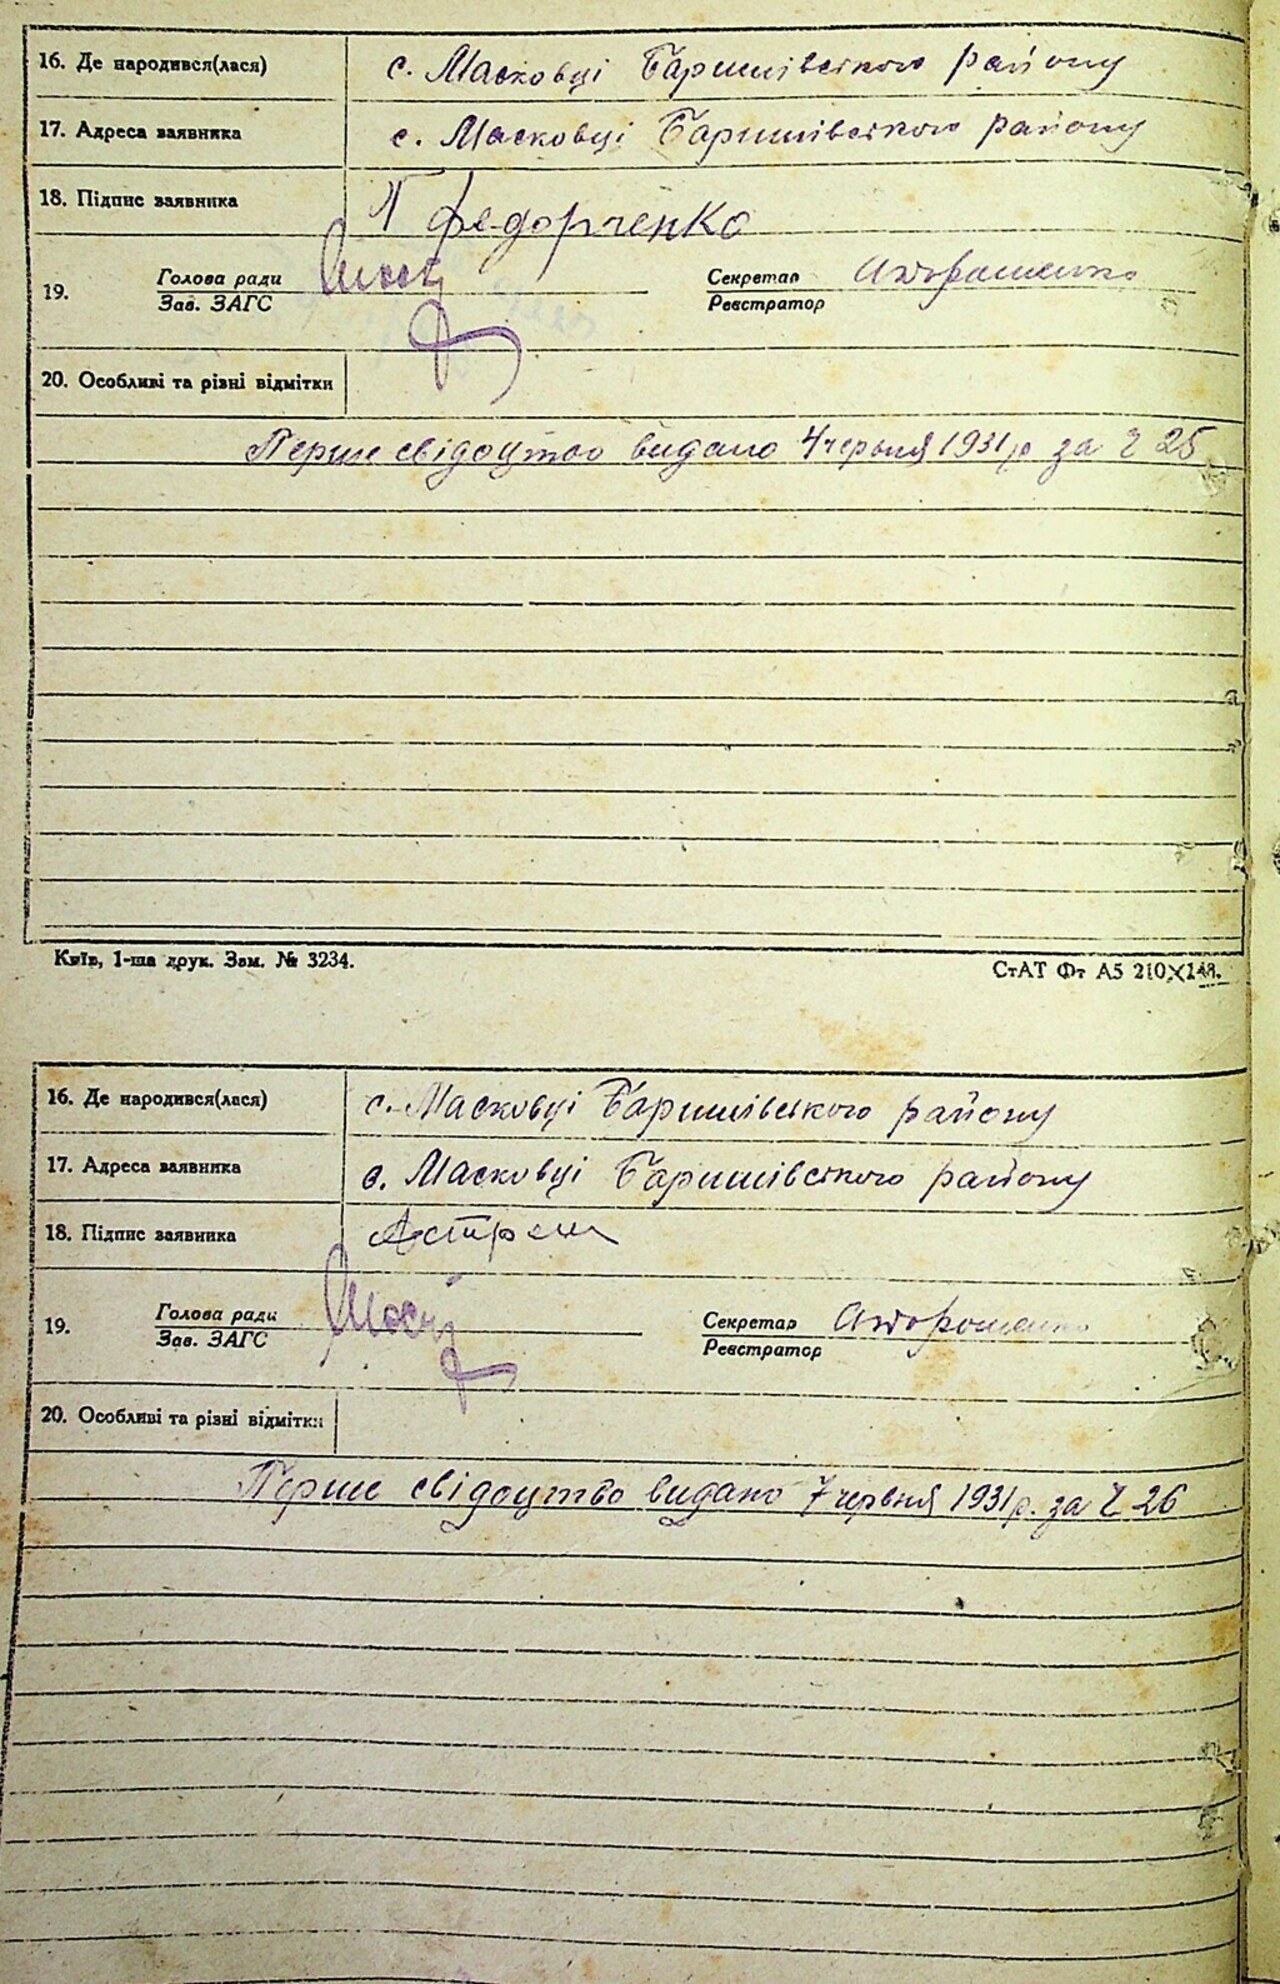 16. Де народився(лася) с. Масковці Баришівського району
17. Адреса заявника с. Масковці Баришівського району
18. Підпис заявника Федорченко
19. Голова ради Секретар
Зав. ЗАГС Реєстратор
20. Особливі та різні відмітки
Перше свідоцтво видано 4 червня 1931 р за Ч 25
Київ, 1-ша друк. Зам. № 3234. СтАТ Фт А5 210×148.
16. Де народився(лася) с. Масковці Баришівського району
17. Адреса заявника с. Масковці Баришівського району
18. Підпис заявника
19. Голова ради Секретар
Зав. ЗАГС Реєстратор
20. Особливі та різні відмітки
Перше свідоцтво видано 7 червня 1931 р. за Ч 26